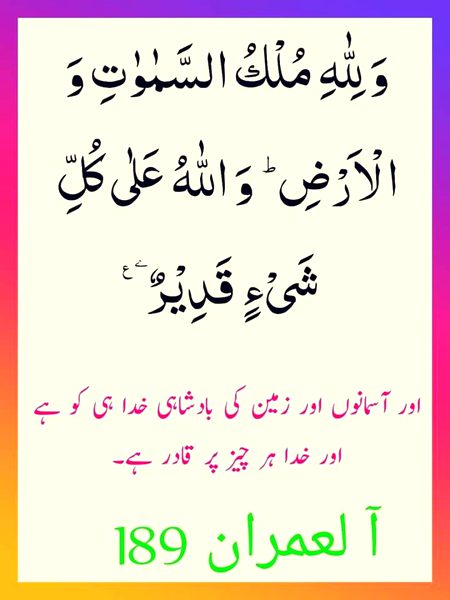 وَ لِلّٰهِ مُلْكُ السَّمٰوٰتِ وَ
الْاَرْضِ ؕ وَ اللّٰهُ عَلٰى كُلِّ
شَیْءٍ قَدِیْرٌ۠ ے ع
اور آسمانوں اور زمین کی بادشاہی خدا ہی کو ہے
اور خدا ہر چیز پر قادر ہے۔
آ لعمران 189